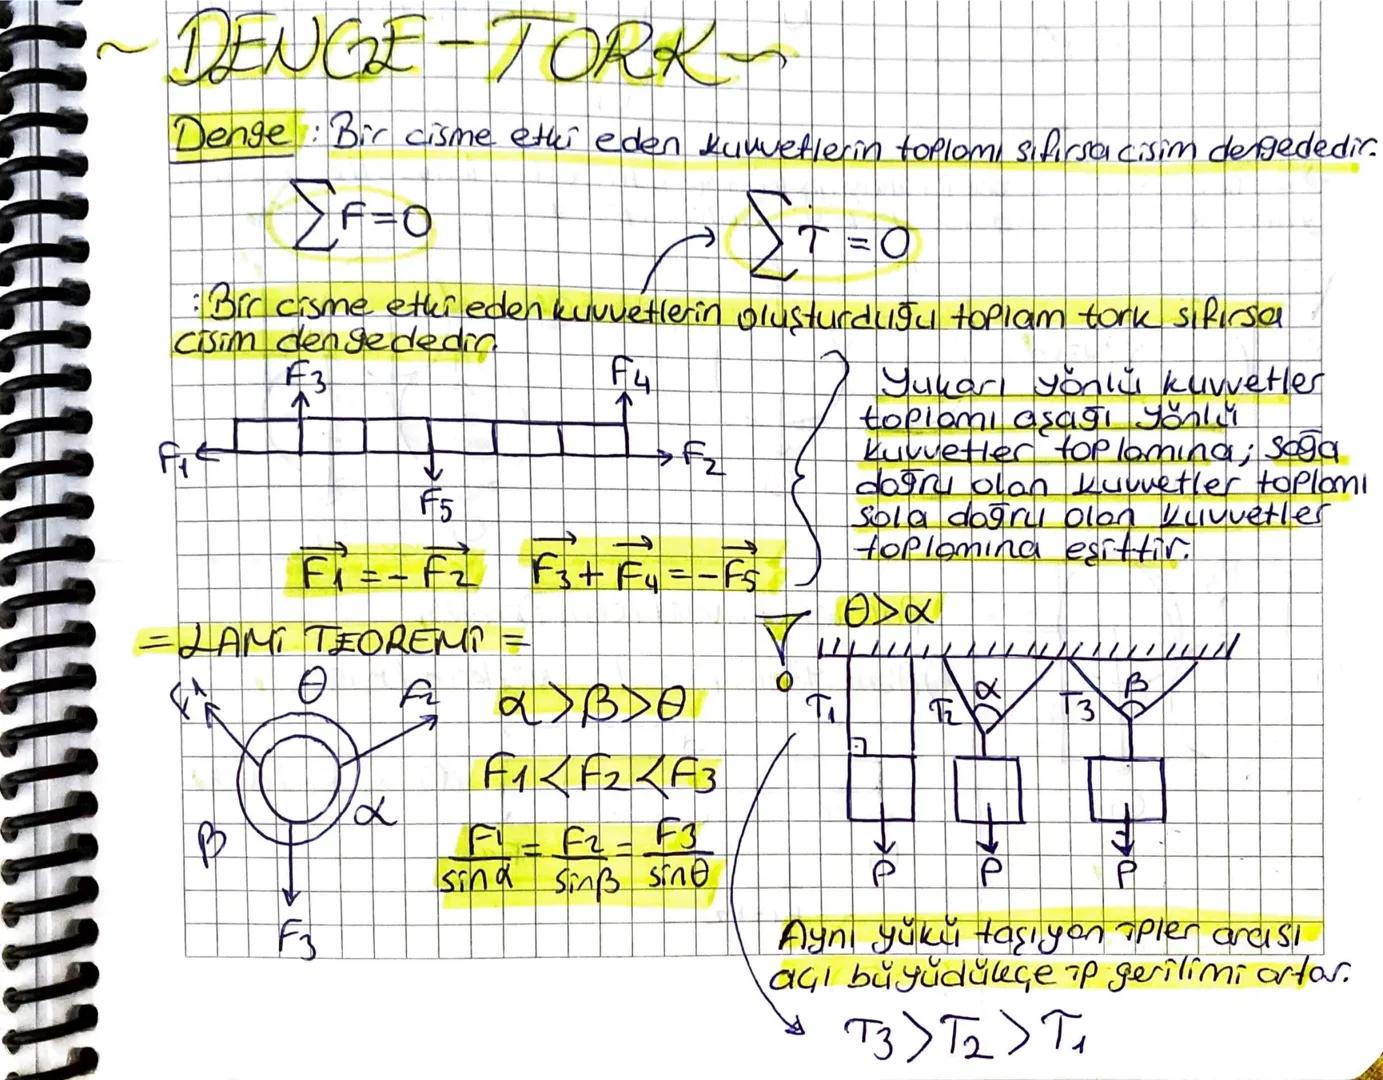 ~ DENGE-TORK ~
Denge : Bir cisme etki eden kuvvetlerin toplamı sıfırsa cisim dengededir.
∑F=0
∑T=0
: Bir cisme etki eden kuvvetlerin oluşturduğu toplam tork sıfırsa
cisim dengededir.
F3
F4
F1
F2
F5
Yukarı yönlü kuvvetler
toplamı aşağı yönlü
kuvvetler toplamına; sağa
doğru olan kuvvetler toplamı
sola doğru olan kuvvetler
toplamına eşittir.
F1 = -F2
F3 + F4 = -F5
= LAMİ TEOREMİ =
θ
F1
F2
β
α
F3
α>β>θ
F1<F2<F3
F1/sinα = F2/sinβ = F3/sinθ
θ>α
T1
T2
α
T3
β
P
P
P
Aynı yükü taşıyan ipler arası
açı büyüdükçe ip gerilimi artar.
T3>T2>T1